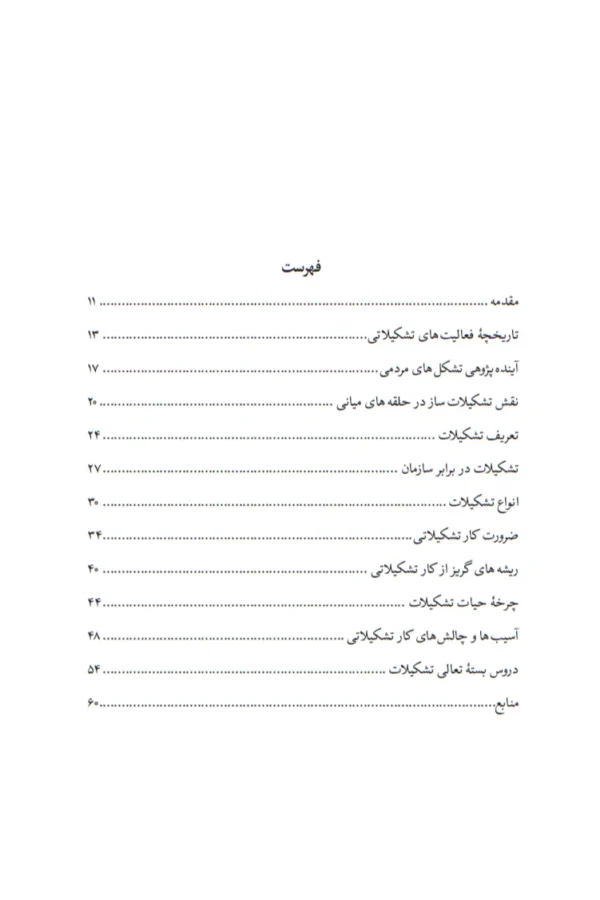 فهرست
مقدمه ........................................ ۱۱
تاریخچهٔ فعالیت‌های تشکیلاتی........................................ ۱۳
آینده‌پژوهی تشکل‌های مردمی........................................ ۱۷
نقش تشکیلات ساز در حلقه های میانی ........................................۲۰
تعریف تشکیلات ........................................ ۲۴
تشکیلات در برابر سازمان ........................................۲۷
انواع تشکیلات ........................................ ۳۰
ضرورت کار تشکیلاتی........................................۳۴
ریشه های گریز از کار تشکیلاتی ........................................ ۴۰
چرخهٔ حیات تشکیلات ........................................۴۴
آسیب‌ها و چالش‌های کار تشکیلاتی ........................................۴۸
دروس بستهٔ تعالی تشکیلات ........................................ ۵۴
منابع........................................۶۰